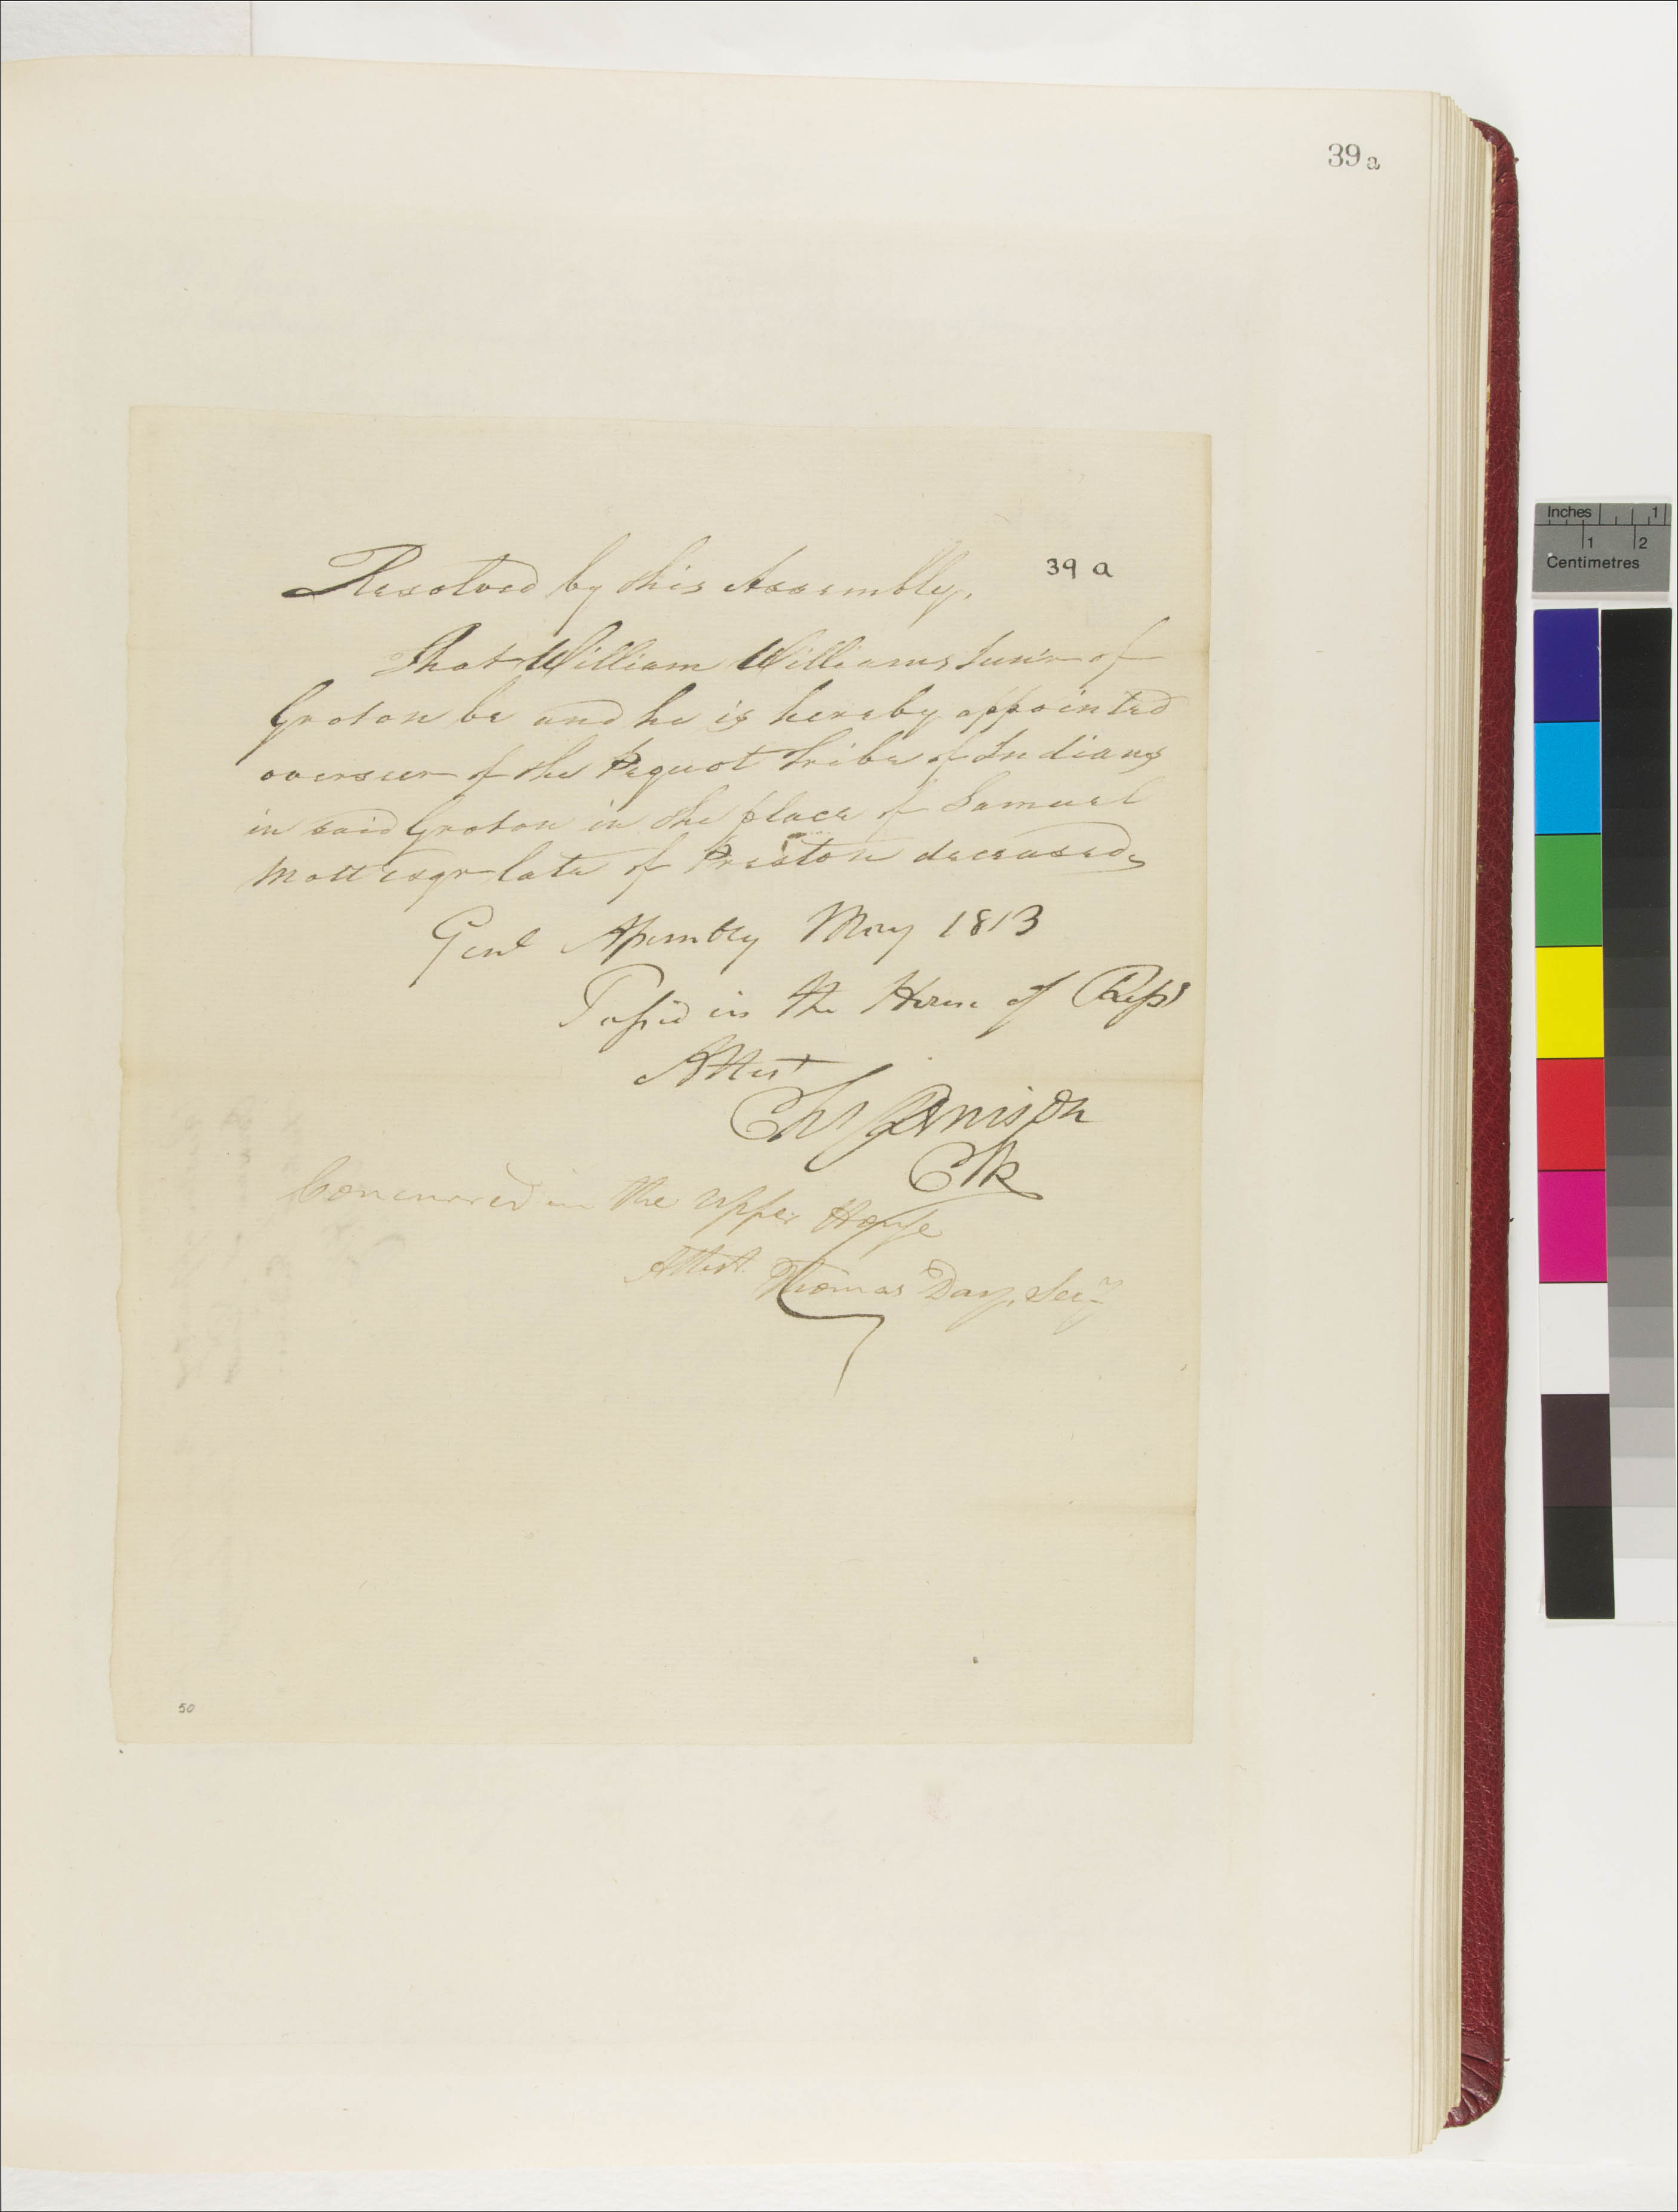 39 a
39 a
Resolved by this Assembly,
That William Williams Junr of
Groton be and he is hereby appointed
overseer of the Pequot tribe of Indians
in said Groton in the place of Samuel
Mott esqr late of Preston deceased,
Genl Assembly May 1813
Passd in the House of Reps
Attest
Chs Denison
Clk
Concurred in the Upper House
Attest. Thomas Day, Secy
50
Inches 1
1 2
Centimetres